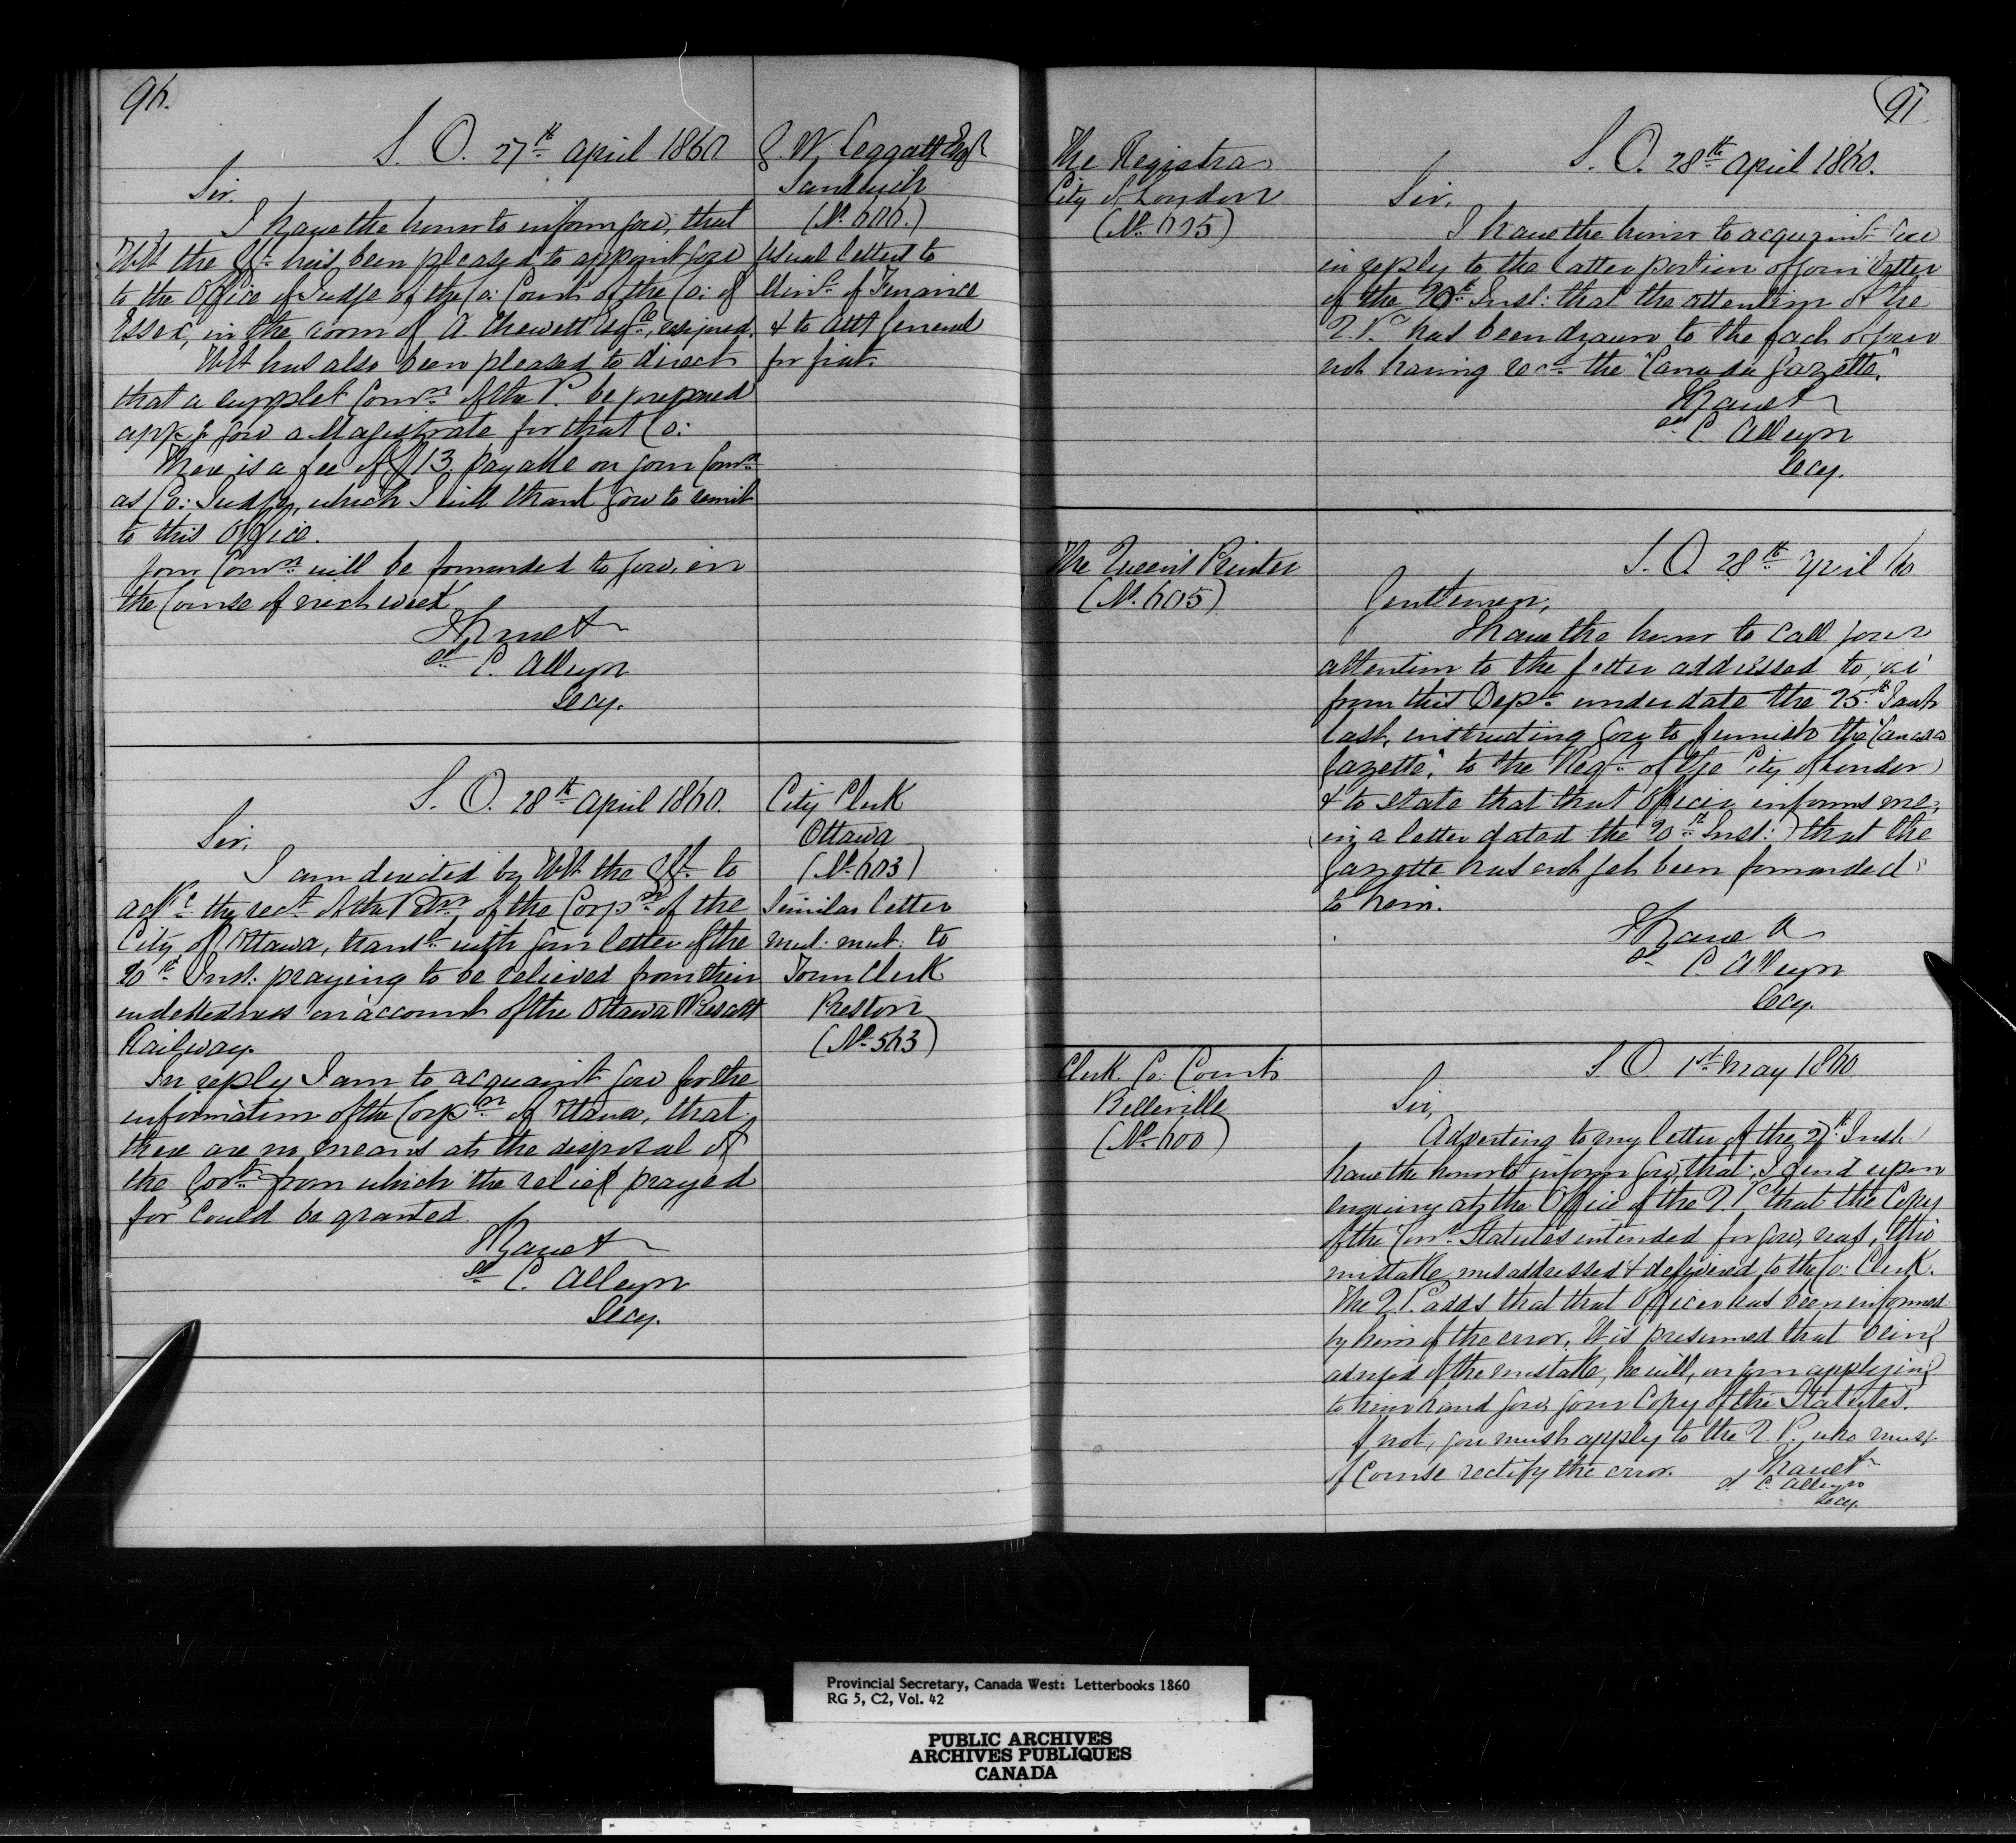 96.
S. O. 27th April 1860
G. W. Leggatt Esqr
Sandwich
(No. 606.)
Usual letters to
Minr. of Finance
& to Atty General
for fiat.
Sir.
I have the honor to inform you, that
the has been pleased to appoint you
to the Office of Judge of the Co: Court of the Co: of
Essex, in the room of A. Chewett Esqre, resigned.
has also been pleased to direct
that a supplet Comn. of the P. be prepared
appg you a Magistrate for that Co:
There is a fee of $13. payable on your Comn
as Co: Judge, which I will thank you to remit
to this Office.
Your Comn. will be forwarded to you, in
the Course of next week
I have &
sd. C. Alleyn
Secy.
S. O. 28th April 1860.
City Clerk
Ottawa
(No. 603)
Similar letter
mut. mut: to
Town Clerk
Preston
(No. 563)
Sir,
I am directed by the to
ackge the rect. of the Petn. of the Corpn. of the
City of Ottawa, transd. with your letter of the
20th Inst: praying to be relieved from their
indebtedness on account of the Ottawa & Prescott
Railway.
In reply I am to acquaint you for the
information of the Corpn of Ottawa, that
there are no means at the disposal of
the Govt. from which the relief prayed
for could be granted
I have &
sd. C. Alleyn
Secy.
97
The Registrar
City of London
(No. 605)
S. O. 28th April 1860.
Sir,
I have the honor to acquaint you
in reply to the latter portion of your letter
of the 20th Inst: that the attention of the
Q. P. has been drawn to the fact of your
not having recd. the "Canada Gazette."
I have &
sd C Alleyn
Secy.
The Queen's Printer
(No. 605)
S. O. 28th April 60
Gentlemen,
I have the honor to call your
attention to the letter addressed to you
from this Dept. under date the 25th Jany
last, instructing you to furnish the "Canada
Gazette," to the Regr. of the City of London
& to state that that Officer informs me,
(in a letter dated the 20th Inst:) that the
Gazette has not yet been forwarded
to him.
I have &
sd C. Alleyn
Secy.
Clerk Co. Court
Belleville
(No. 600)
S. O. 1st May 1860
Sir,
Adverting to my letter of the 27th Inst. I
have the honor to inform you, that I find upon
enquiry at the Office of the Q. P. that the Copy
of the Cons. Statutes intended for you, was, thro'
mistake misaddressed & delivered to the Co: Clerk.
The Q. P. adds that that Officer has been informed
by him of the error. It is presumed that being
advised of the mistake, he will, on your applying
to him hand you, your Copy of the Statutes.
If not, you must apply to the Q. P. who must
of Course rectify the error.
I have &
sd. C. Alleyn
Secy.
Provincial Secretary, Canada West: Letterbooks 1860
RG 5, C2, Vol. 42
PUBLIC ARCHIVES
ARCHIVES PUBLIQUES
CANADA